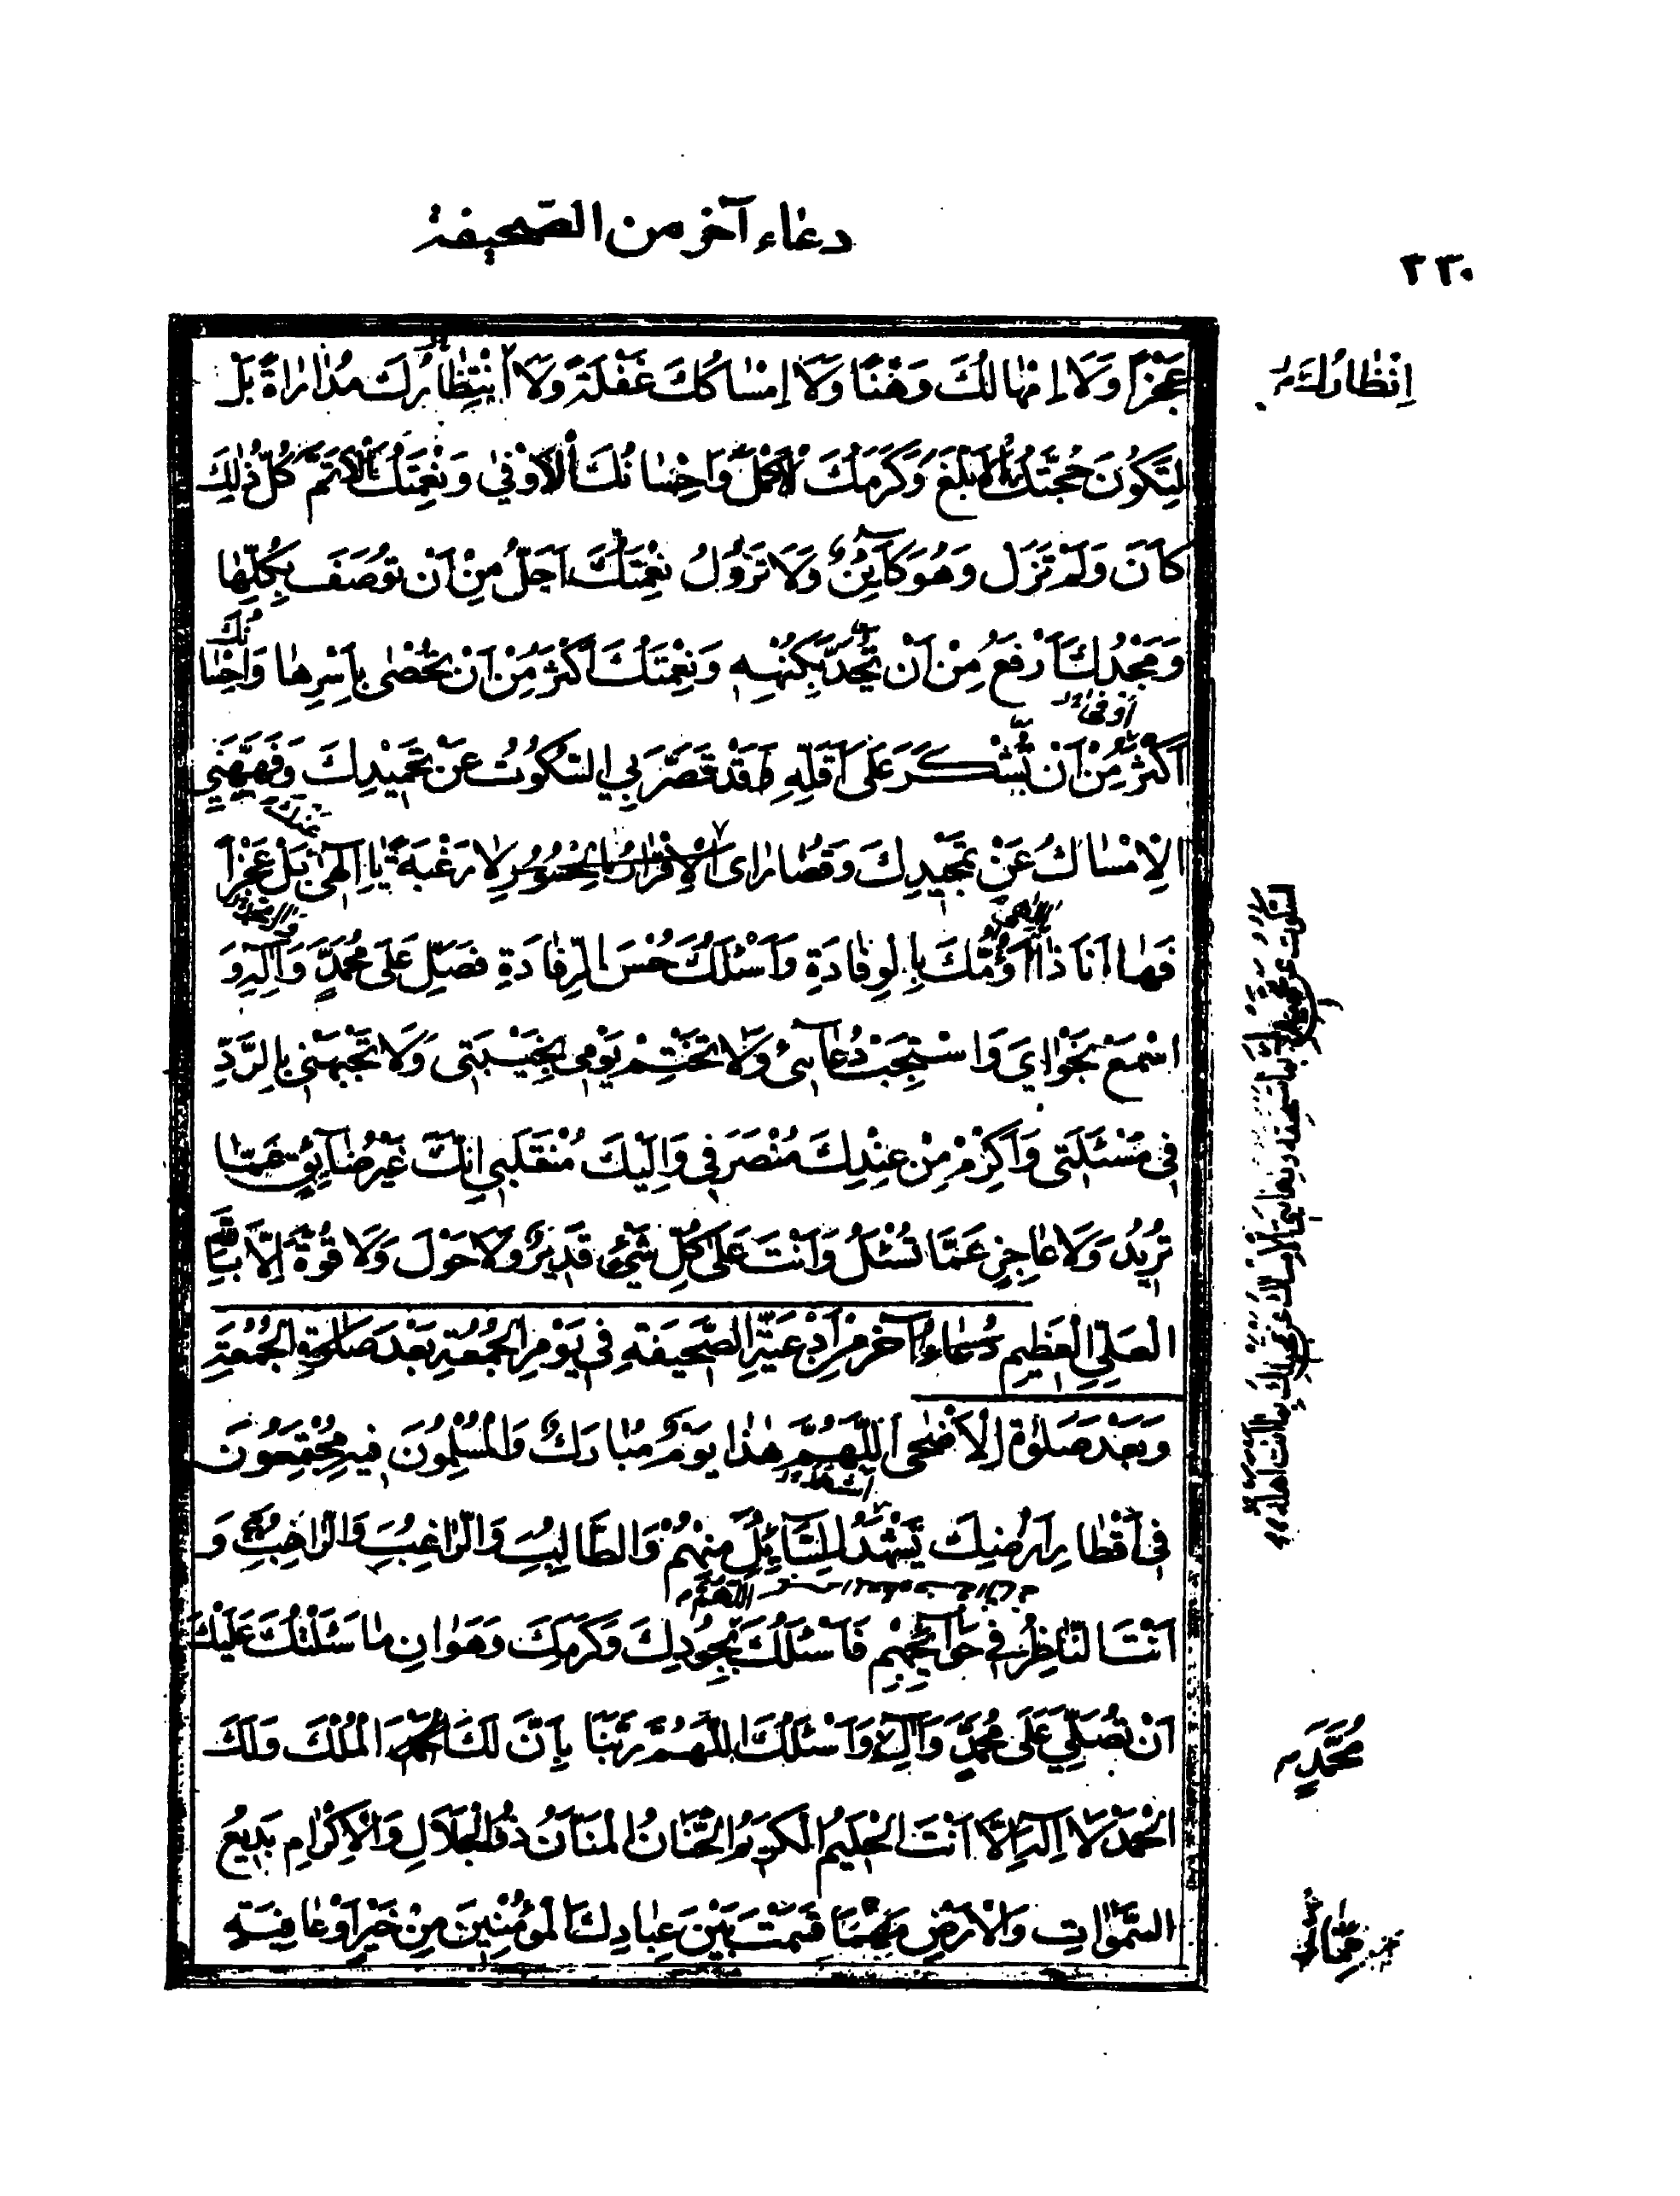 دعاء آخر من الصحيفة
٢٣٠
عَجْزاً وَلَا اِمْهَالُكَ وَهْنًا وَلَا اِمْسَاكُكَ غَفْلَةً وَلَا انْتِظَارُكَ مُدَارَاةً بَلْ
اِنْظَارُكَ
لِتَكُونَ حُجَّتُكَ الْاَبْلَغَ وَكَرَمُكَ الْاَكْمَلَ وَاِحْسَانُكَ الْاَوْفٰى وَنِعْمَتُكَ الْاَتَمَّ كُلُّ ذٰلِكَ
كَانَ وَلَمْ تَزَلْ وَهُوَ كَآئِنٌ وَلَا تَزُولُ نِعْمَتُكَ اَجَلُّ مِنْ اَنْ تُوصَفَ بِكُلِّهَا
وَمَجْدُكَ اَرْفَعُ مِنْ اَنْ يُحَدَّ بِكُنْهِهِ وَنِعْمَتُكَ اَكْثَرُ مِنْ اَنْ تُحْصٰى بِاَسْرِهَا وَاِحْسَانُكَ
اَوْفٰى
اَكْثَرُ مِنْ اَنْ تُشْكَرَ عَلٰى اَقَلِّهِ وَقَدْ قَصَّرَ بِيَ السُّكُوتُ عَنْ تَحْمِيدِكَ وَفَهَّهَنِي
الْاِمْسَاكُ عَنْ تَمْجِيدِكَ وَقُصَارَاىَ الْاِقْرَارُ بِالْحُسُورِ لَا رَغْبَةً يَا اِلٰهِى بَلْ عَجْزاً
عَنْكَ
فَهَا اَنَا ذَا اَؤُمُّكَ بِالْوِفَادَةِ وَاَسْئَلُكَ حُسْنَ الرِّفَادَةِ فَصَلِّ عَلٰى مُحَمَّدٍ وَآلِهِ وَ
اسْمَعْ نَجْوَايَ وَاسْتَجِبْ دُعَآئِى وَلَا تَخْتِمْ يَوْمِى بِخَيْبَتِى وَلَا تَجْبَهْنِى بِالرَّدِّ
فِى مَسْئَلَتِى وَاَكْرِمْ مِنْ عِنْدِكَ مُنْصَرَفِى وَاِلَيْكَ مُنْقَلَبِى اِنَّكَ غَيْرُ ضَآئِقٍ عَمَّا
تُرِيدُ وَلَا عَاجِزٍ عَمَّا تُسْئَلُ وَاَنْتَ عَلٰى كُلِّ شَيْءٍ قَدِيرٌ وَلَا حَوْلَ وَلَا قُوَّةَ اِلَّا بِاللّٰهِ
الْعَلِيِّ الْعَظِيمِ دُعَاءٌ آخَرُ مِنْ اَدْعِيَةِ الصَّحِيفَةِ فِى يَوْمِ الْجُمُعَةِ بَعْدَ صَلٰوةِ الْجُمُعَةِ
وَبَعْدَ صَلٰوةِ الْاَضْحٰى اَللّٰهُمَّ هٰذَا يَوْمٌ مُبَارَكٌ وَالْمُسْلِمُونَ فِيهِ مُجْتَمِعُونَ
فِى اَقْطَارِ اَرْضِكَ يَشْهَدُ السَّآئِلُ مِنْهُمْ وَالطَّالِبُ وَالرَّاغِبُ وَالرَّاهِبُ وَ
اللّٰهُمَّ
اَنْتَ النَّاظِرُ فِى حَوَآئِجِهِمْ فَاَسْئَلُكَ بِجُودِكَ وَكَرَمِكَ وَهَوَانِ مَا سَئَلْتُكَ عَلَيْكَ
اَنْ تُصَلِّيَ عَلٰى مُحَمَّدٍ وَآلِهِ وَاَسْئَلُكَ اللّٰهُمَّ رَبَّنَا بِاَنَّ لَكَ الْمُلْكَ وَلَكَ
مُحَمَّدٍ
الْحَمْدَ لَا اِلٰهَ اِلَّا اَنْتَ الْحَلِيمُ الْكَرِيمُ الْحَنَّانُ الْمَنَّانُ ذُو الْجَلَالِ وَالْاِكْرَامِ بَدِيعُ
السَّمٰوَاتِ وَالْاَرْضِ مَهْمَا قَسَمْتَ بَيْنَ عِبَادِكَ الْمُؤْمِنِينَ مِنْ خَيْرٍ اَوْ عَافِيَةٍ